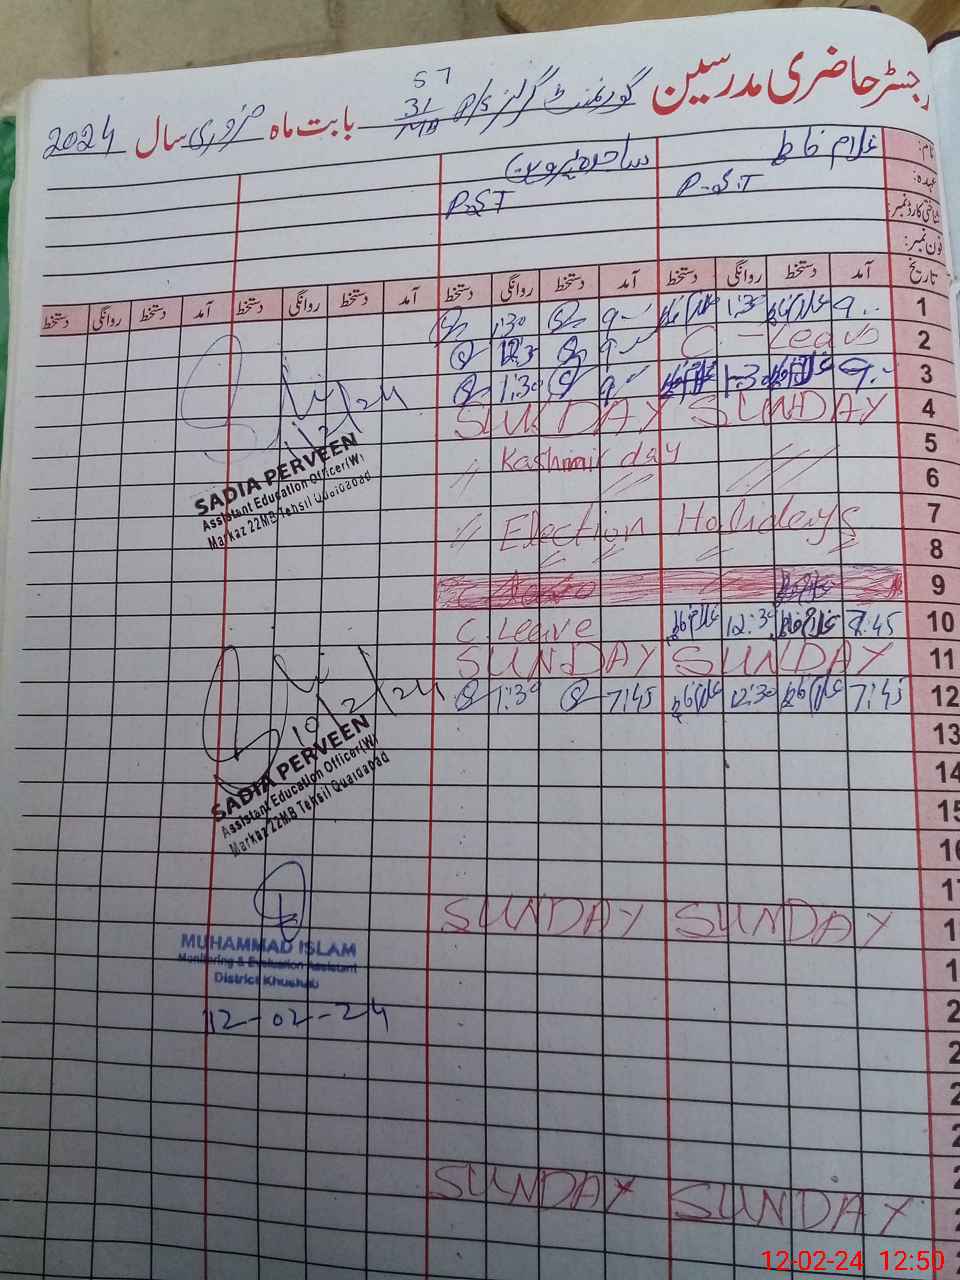 رجسٹر حاضری مدرسین گورنمنٹ گرلز P/S 31/MB بابت ماہ فروری سال 2024
57
نام: غلام فاطمہ ساجدہ پروین
عہدہ: P.S.T P.S.T
شناختی کارڈ نمبر:
فون نمبر:
تاریخ آمد دستخط روانگی دستخط آمد دستخط روانگی دستخط آمد دستخط روانگی دستخط
1 9.. 1:30 9 1:30
2 C-Leave 9 12:30
3 9.. 1:30 9 1:30
4 SUNDAY SUNDAY
5 Kashmir day
6
7 Election Holidays
8
9
10 7:45 12:30 C.Leave
11 SUNDAY SUNDAY
12 7:45 12:30 7:45 1:30
13
14
15
16
SUNDAY SUNDAY
SUNDAY SUNDAY
1/2/24
SADIA PERVEEN
Assistant Education Officer(W)
Markaz 22MB Tehsil Quaidabad
10/2/24
SADIA PERVEEN
Assistant Education Officer(W)
Markaz 22MB Tehsil Quaidabad
MUHAMMAD ISLAM
Monitoring & Evaluation Assistant
District Khushab
12-02-24
12-02-24 12:50